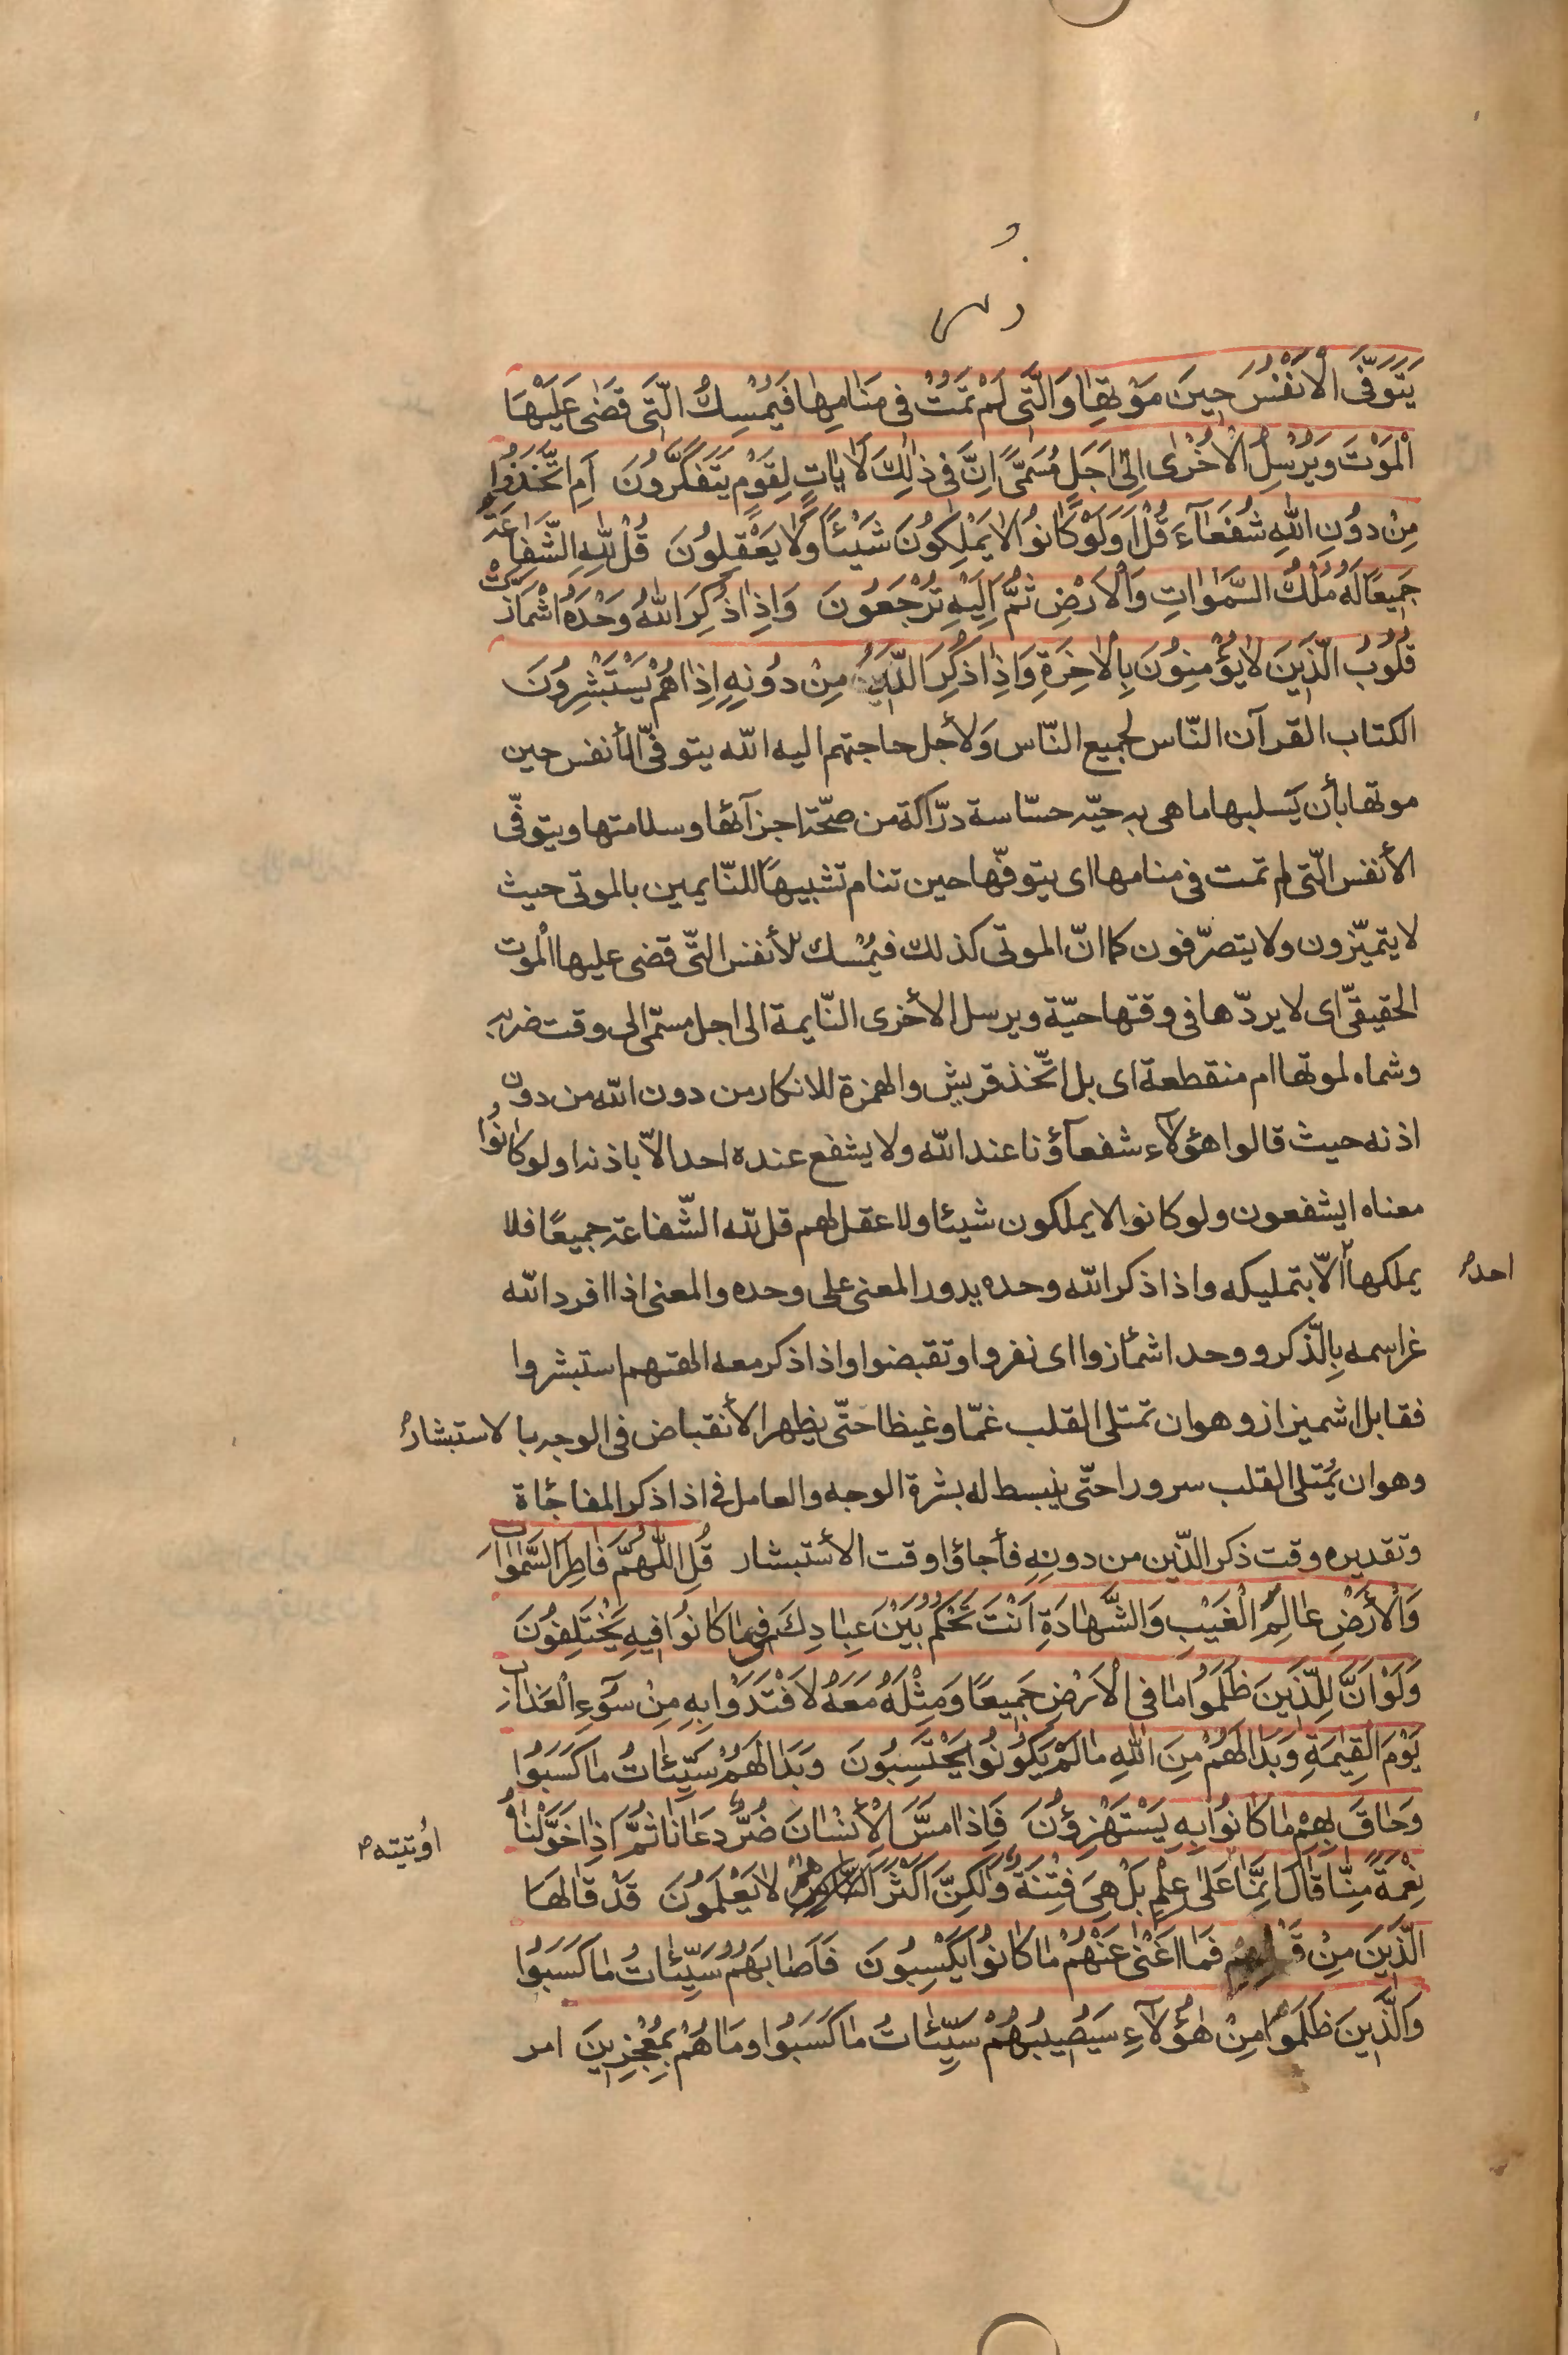 يَتَوَفَّى الْاَنْفُسَ حِينَ مَوْتِهَا وَالَّتِى لَمْ تَمُتْ فِى مَنَامِهَا فَيُمْسِكُ الَّتِى قَضٰى عَلَيْهَا
الْمَوْتَ وَيُرْسِلُ الْاُخْرٰى اِلٰى اَجَلٍ مُسَمًّى اِنَّ فِى ذٰلِكَ لَاٰيَاتٍ لِقَوْمٍ يَتَفَكَّرُونَ اَمِ اتَّخَذُوا
مِنْ دُونِ اللّٰهِ شُفَعَآءَ قُلْ اَوَلَوْ كَانُوا لَا يَمْلِكُونَ شَيْئًا وَلَا يَعْقِلُونَ قُلْ لِلّٰهِ الشَّفَاعَةُ
جَمِيعًا لَهُ مُلْكُ السَّمٰوَاتِ وَالْاَرْضِ ثُمَّ اِلَيْهِ تُرْجَعُونَ وَاِذَا ذُكِرَ اللّٰهُ وَحْدَهُ اشْمَأَزَّتْ
قُلُوبُ الَّذِينَ لَا يُؤْمِنُونَ بِالْاٰخِرَةِ وَاِذَا ذُكِرَ الَّذِينَ مِنْ دُونِهِ اِذَا هُمْ يَسْتَبْشِرُونَ
الكتاب القرآن النّاس لجميع النّاس وَلأجل حاجتهم اليه الله يتوفّى الأنفس حين
موتها بأن يَسلبها ما هى به حيّة حسّاسة درّاكة من صحّة اجزآئها وسلامتها ويتوفّى
الأنفس الّتى لم تمت فى منامها اى يتوفّها حين تنام تشبيهًا للنّايمين بالموتى حيث
لا يتميّزون ولا يتصرّفون كما انّ الموتى كذلك فيُمْسك الأنفس التّى قضى عليها الْموت
الحقيقىّ اى لا يردّها فى وقتها حيّة ويرسل الأخرى النّايمة الى اجل مسمّى الى وقت ضربه
وشماه لموتها ام منقطعة اى بل اتّخذ قريش والهمزة للانكار من دون الله من دون
اذنه حيث قالوا هؤلآء شفعآؤنا عند الله ولا يشفع عنده احد الاّ باذنه اولو كانُوا
معناه ايشفعون ولو كانوا لا يملكون شيئا ولا عقل لهم قل لله الشّفاعة جميعًا فلا
يملكها الاّ بتمليكه واذا ذكر الله وحده يدور المعنى على وحده والمعنى اذا افرد الله
احد
غراسمه بِالّذكر ووحد اشمأزوا اى نفروا وتقبضوا واذا ذكر معه الهتهم استبشروا
فقابل اشميزاز وهو ان تمتلى القلب غمّا وغيظا حتّى يظهر الأنقباض فى الوجه بالاستبشار
وهو ان يُمتلى القلب سرورا حتّى ينبسط له بشرة الوجه والعامل فى اذا ذكر المفاجئاة
وتقديره وقت ذكر الذّين من دونِهِ فأجاؤا وقت الأستبشار قُلِ اللّٰهُمَّ فَاطِرَ السَّمٰوَاتِ
وَالْأَرْضِ عَالِمَ الْغَيْبِ وَالشَّهَادَةِ اَنْتَ تَحْكُمُ بَيْنَ عِبَادِكَ فِيمَا كَانُوا فِيهِ يَخْتَلِفُونَ
وَلَوْ اَنَّ لِلَّذِينَ ظَلَمُوا مَا فِى الْاَرْضِ جَمِيعًا وَمِثْلَهُ مَعَهُ لَافْتَدَوْا بِهِ مِنْ سُوٓءِ الْعَذَابِ
يَوْمَ الْقِيٰمَةِ وَبَدَا لَهُمْ مِنَ اللّٰهِ مَا لَمْ يَكُونُوا يَحْتَسِبُونَ وَبَدَا لَهُمْ سَيِّئَاتُ مَا كَسَبُوا
وَحَاقَ بِهِمْ مَا كَانُوا بِهِ يَسْتَهْزِؤُنَ فَاِذَا مَسَّ الْاِنْسَانَ ضُرٌّ دَعَانَا ثُمَّ اِذَا خَوَّلْنَاهُ
نِعْمَةً مِنَّا قَالَ اِنَّمَا عَلٰى عِلْمٍ بَلْ هِىَ فِتْنَةٌ وَلٰكِنَّ اَكْثَرَهُمْ لَا يَعْلَمُونَ قَدْ قَالَهَا
اوُتيته
الَّذِينَ مِنْ قَبْلِهِمْ فَمَا اَغْنٰى عَنْهُمْ مَا كَانُوا يَكْسِبُونَ فَاَصَابَهُمْ سَيِّئَاتُ مَا كَسَبُوا
وَالَّذِينَ ظَلَمُوا مِنْ هٰؤُلَآءِ سَيُصِيبُهُمْ سَيِّئَاتُ مَا كَسَبُوا وَمَا هُمْ بِمُعْجِزِينَ امر